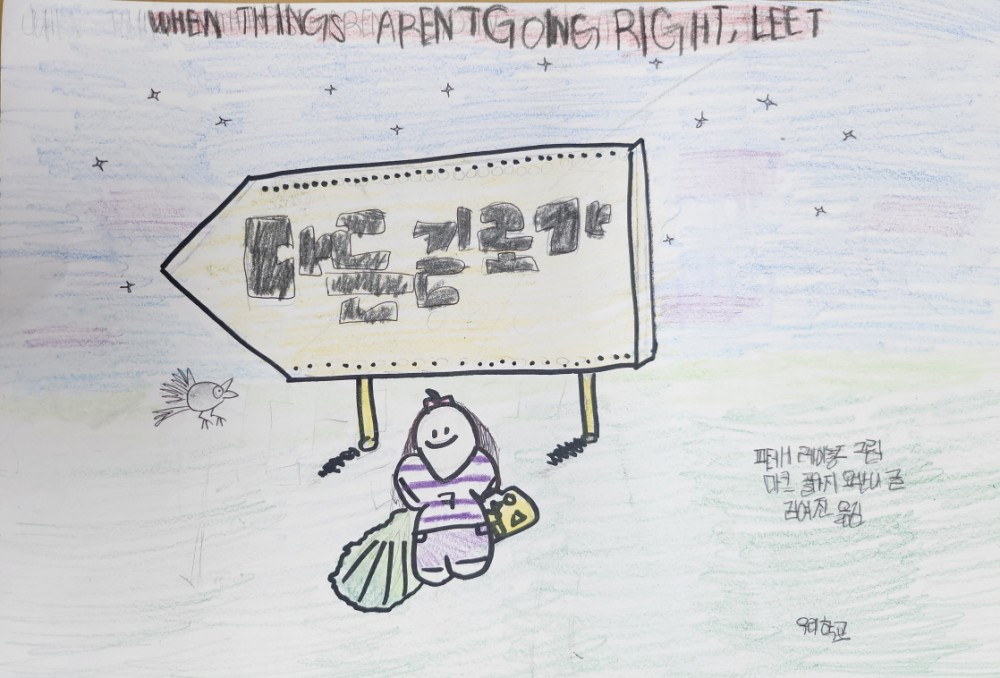 WHEN THINGS ARENT GOING RIGHT, LEET
다른 길로 가
피터 H 레이놀즈 그림
마크 콜라지오반니 글
김여진 옮김
우리학교